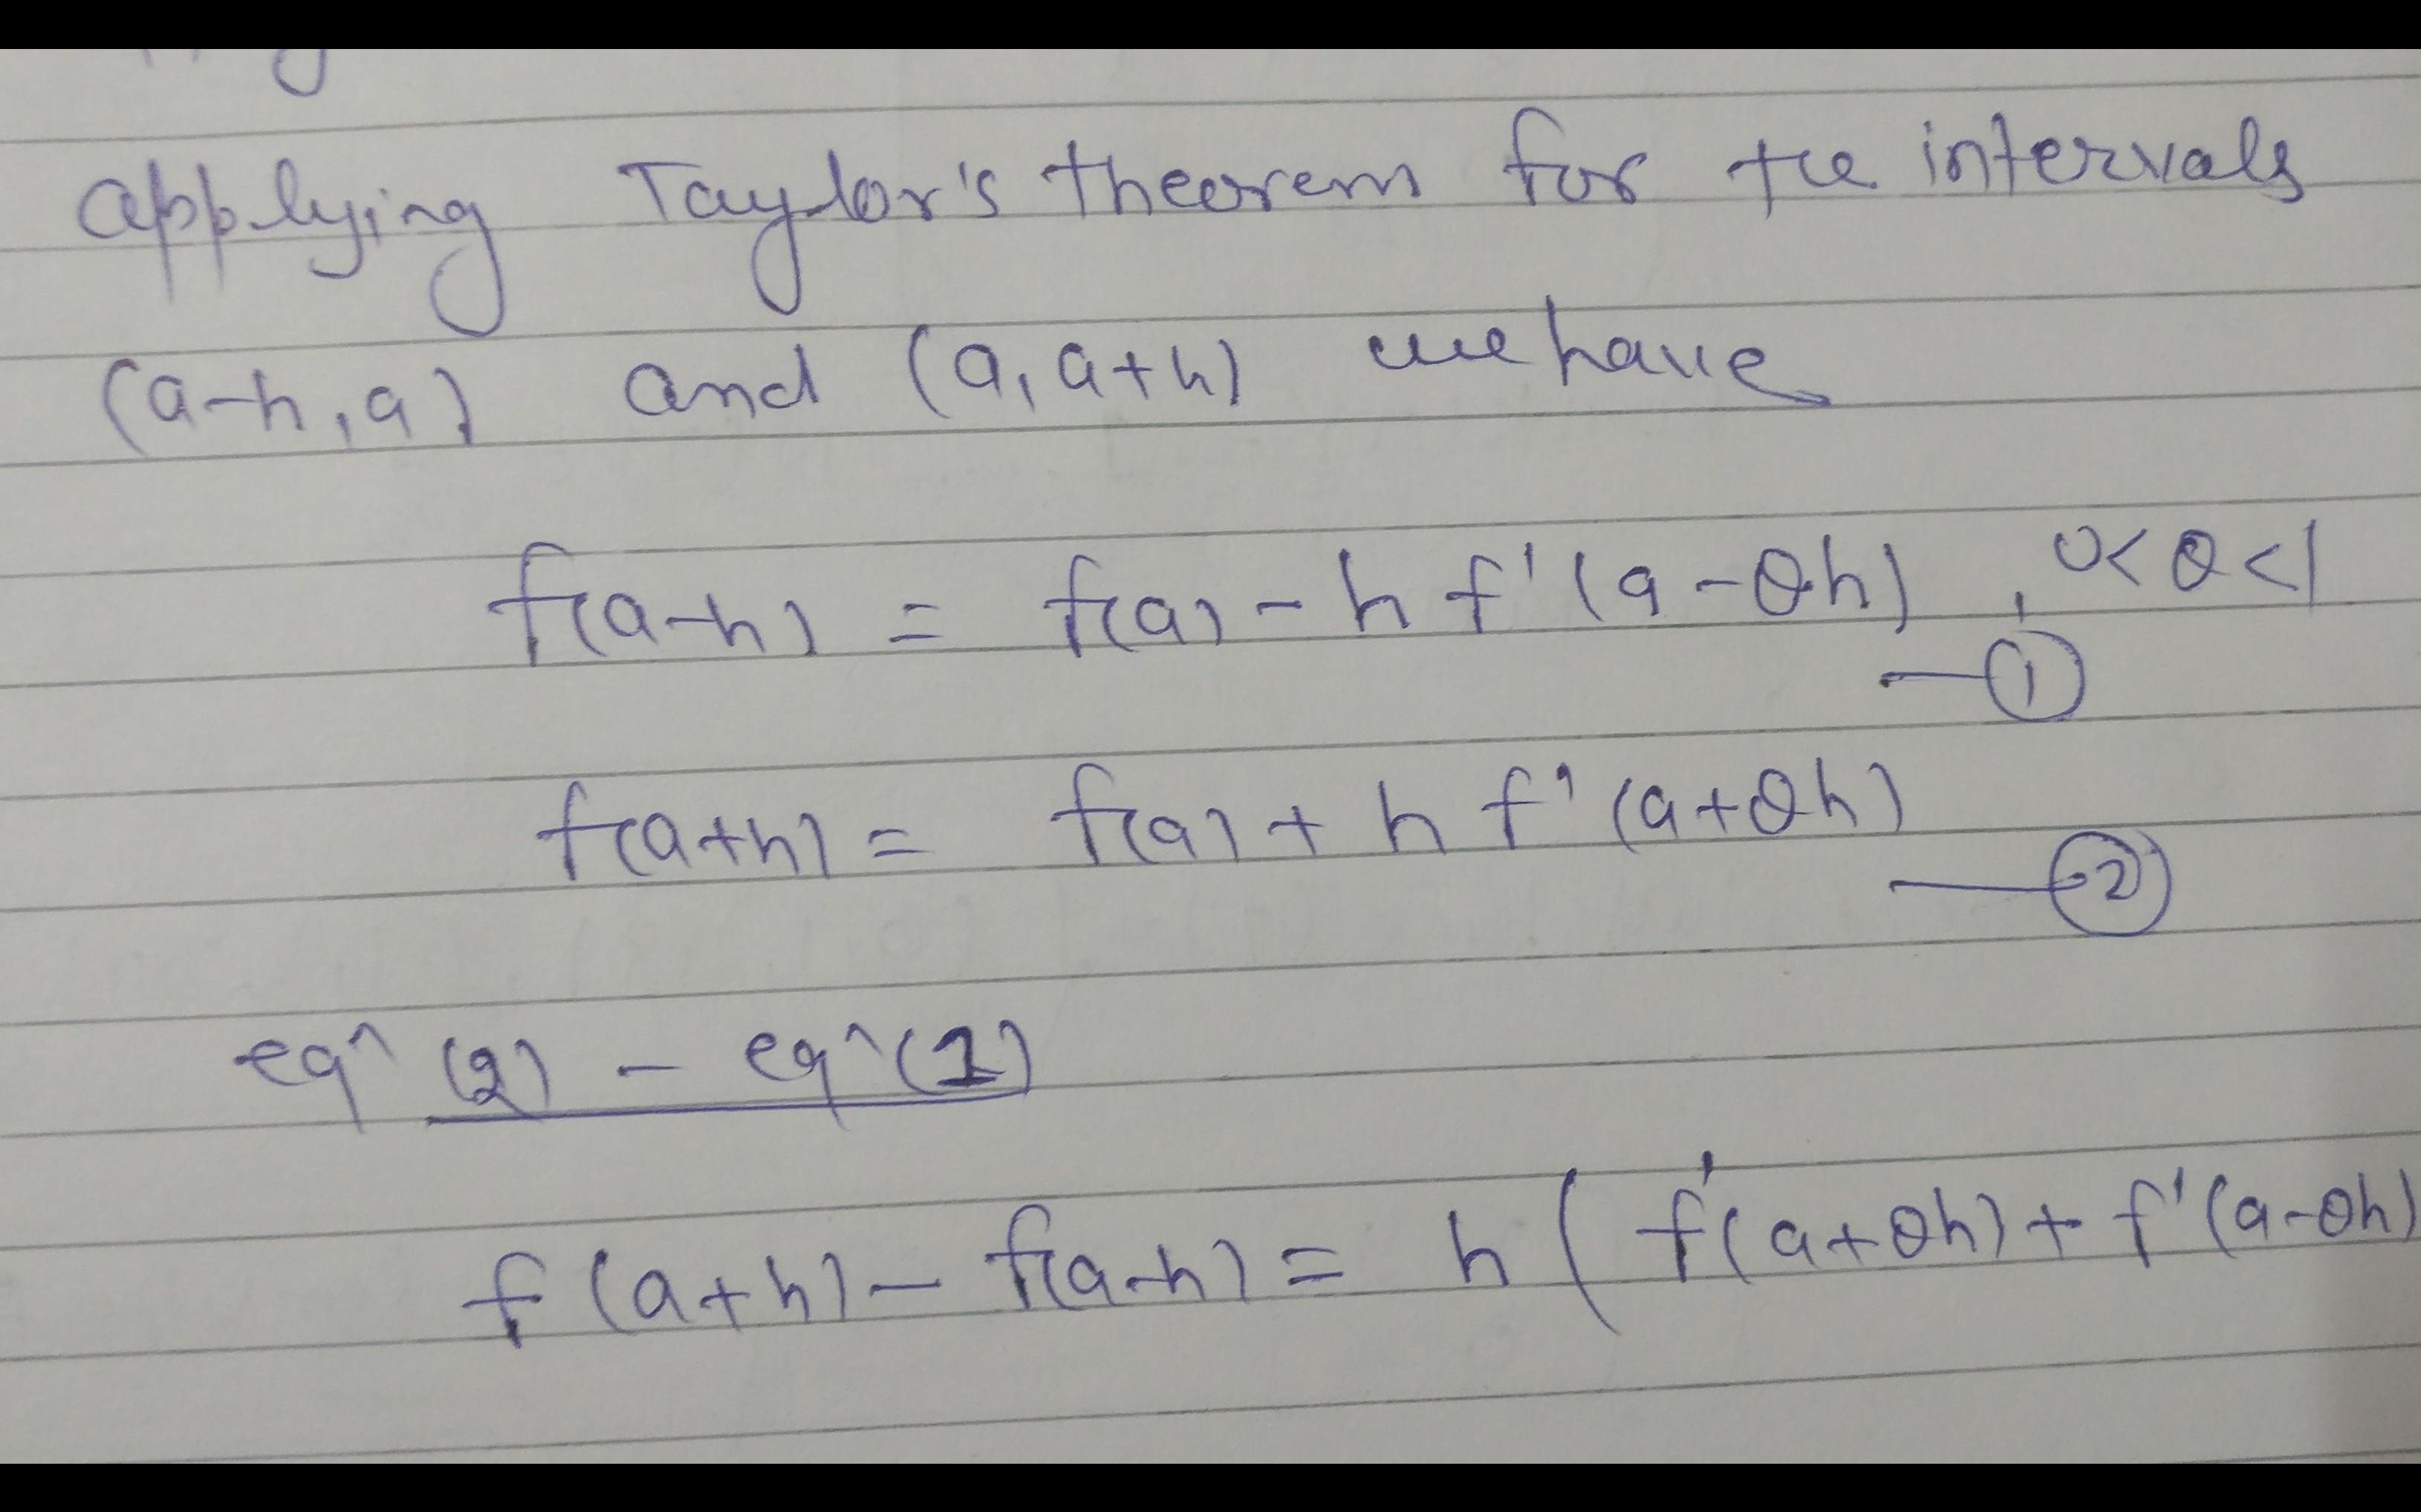 applying Taylor's theorem for the intervals
(a-h, a) and (a, a+h) we have
f(a-h) = f(a) - h f'(a-θh) , 0<θ<1
—①
f(a+h) = f(a) + h f'(a+θh)
—②
eq^ (2) - eq^ (1)
f(a+h) - f(a-h) = h ( f'(a+θh) + f'(a-θh)